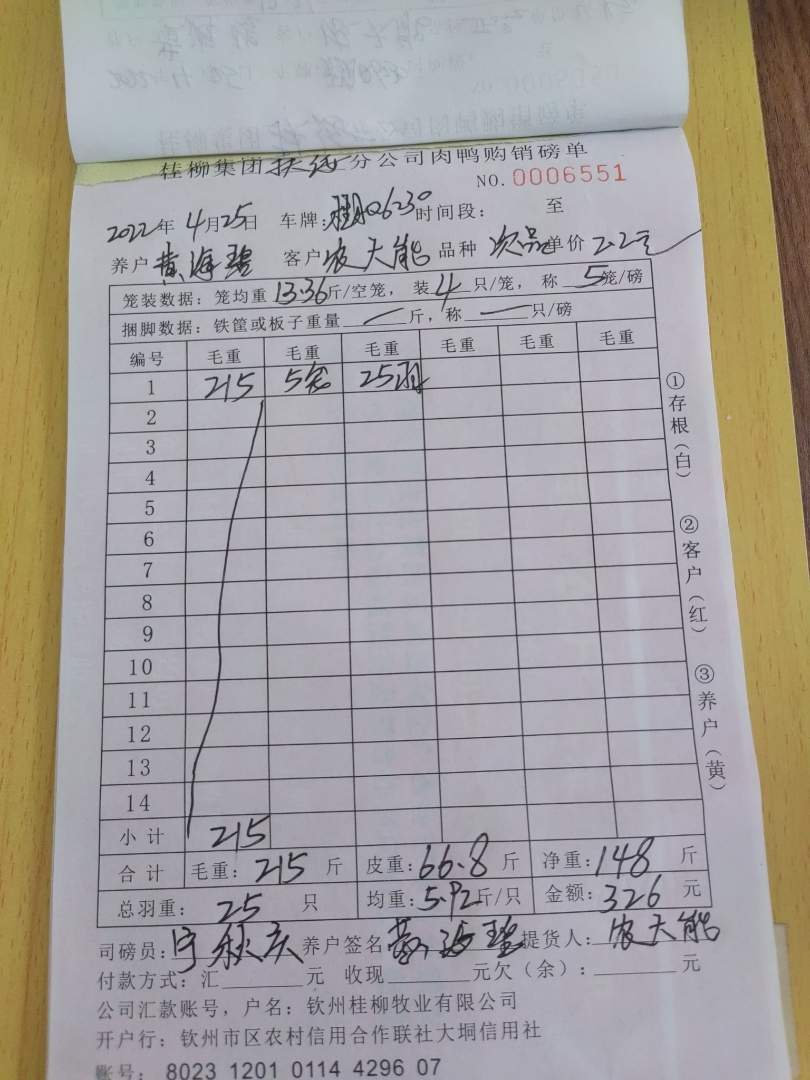 桂柳集团扶绥分公司肉鸭购销磅单
NO.0006551
2022年4月25日 车牌: 时间段: 至
养户 黄海碧 客户 农天能 品种 次品 单价 2.2元
笼装数据：笼均重13.36斤/空笼，装4只/笼，称5笼/磅
捆脚数据：铁筐或板子重量—斤，称—只/磅
编号 毛重 毛重 毛重 毛重 毛重 毛重
1 215 5笼 25羽
2
3
4
5
6
7
8
9
10
11
12
13
14
小计 215
合计 毛重：215斤 皮重：66.8斤 净重：148斤
总羽重：25只 均重：5.92斤/只 金额：326元
司磅员：宁秋庆 养户签名 黄海碧 提货人：农天能
付款方式：汇______元 收现______元欠（余）：______元
公司汇款账号，户名：钦州桂柳牧业有限公司
开户行：钦州市区农村信用合作联社大垌信用社
账号：8023 1201 0114 4296 07
①存根（白）
②客户（红）
③养户（黄）